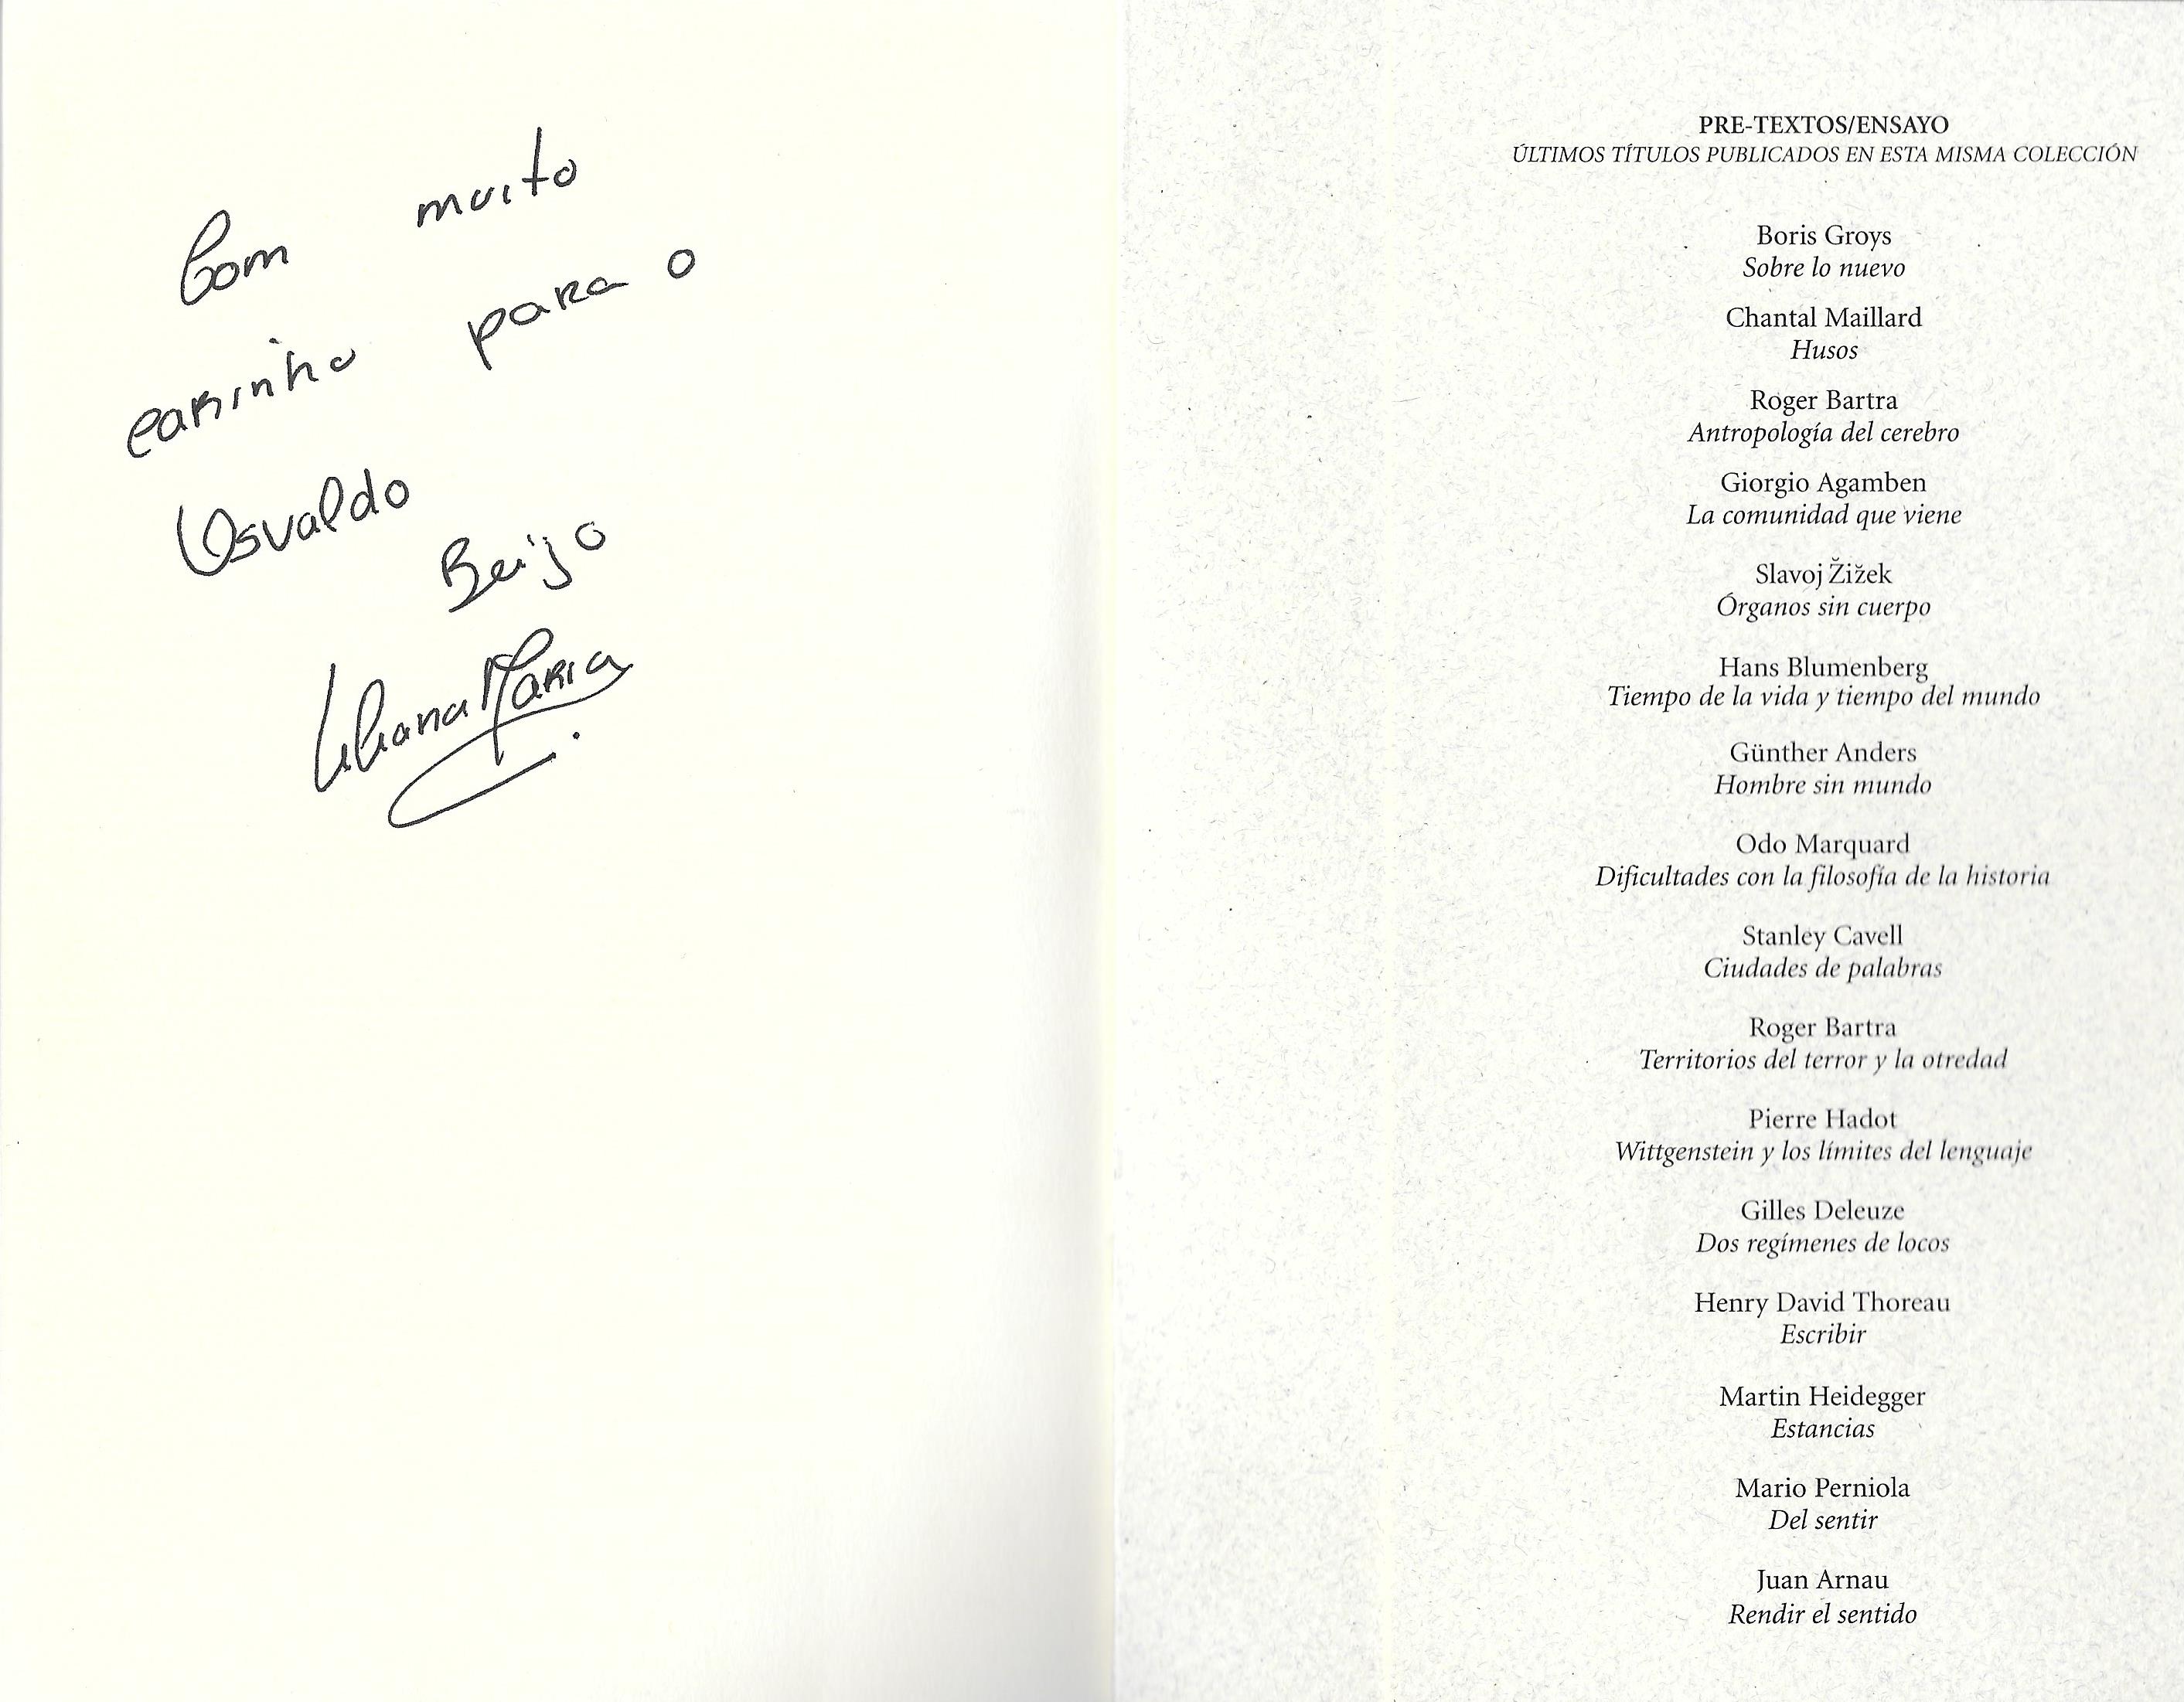 Com muito
carinho para o
Osvaldo
Beijo
Liliana Maria
PRE-TEXTOS/ENSAYO
ÚLTIMOS TÍTULOS PUBLICADOS EN ESTA MISMA COLECCIÓN
Boris Groys
Sobre lo nuevo
Chantal Maillard
Husos
Roger Bartra
Antropología del cerebro
Giorgio Agamben
La comunidad que viene
Slavoj Žižek
Órganos sin cuerpo
Hans Blumenberg
Tiempo de la vida y tiempo del mundo
Günther Anders
Hombre sin mundo
Odo Marquard
Dificultades con la filosofía de la historia
Stanley Cavell
Ciudades de palabras
Roger Bartra
Territorios del terror y la otredad
Pierre Hadot
Wittgenstein y los límites del lenguaje
Gilles Deleuze
Dos regímenes de locos
Henry David Thoreau
Escribir
Martin Heidegger
Estancias
Mario Perniola
Del sentir
Juan Arnau
Rendir el sentido